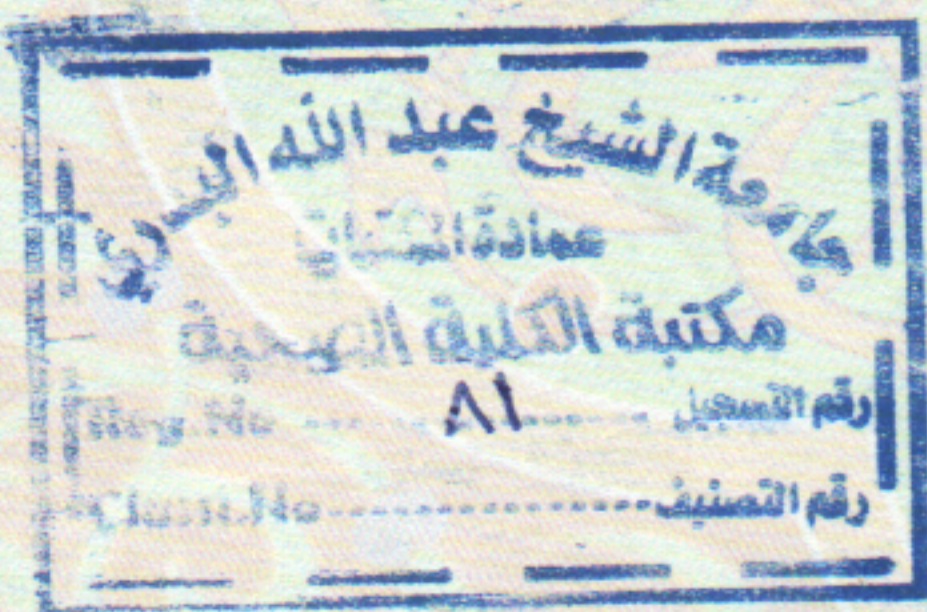 جامعة الشيخ عبد الله البدري
عمادة المكتبات
مكتبة الكلية الصحية
رقم التسجيل ٨١ Reg. No
رقم التصنيف Class. No